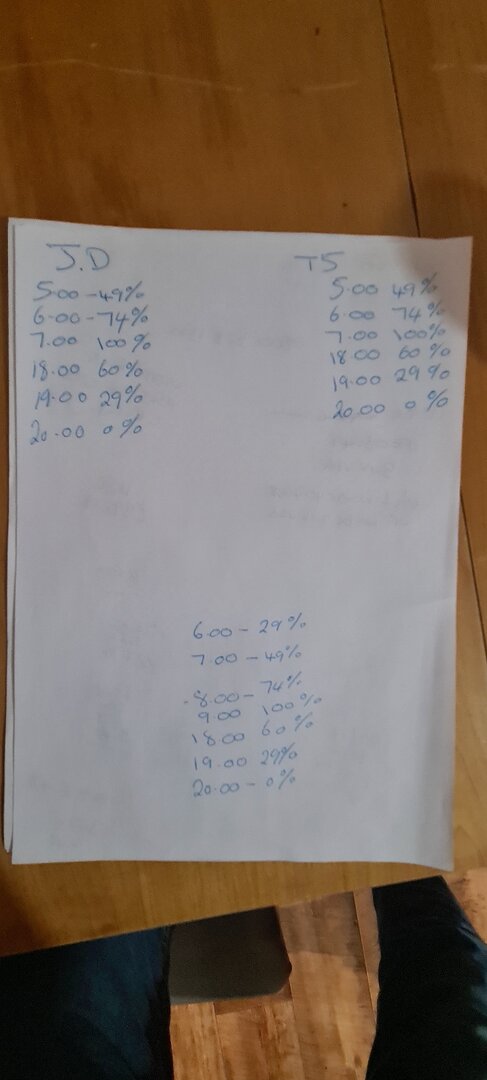 J.D
5.00 - 49%
6.00 - 74%
7.00 100%
18.00 60%
19.00 29%
20.00 0%
T5
5.00 49%
6.00 74%
7.00 100%
18 00 60%
19.00 29%
20.00 0%
6.00 - 29%
7.00 - 49%
8.00 - 74%
9.00 100%
18.00 60%
19.00 29%
20.00 - 0%